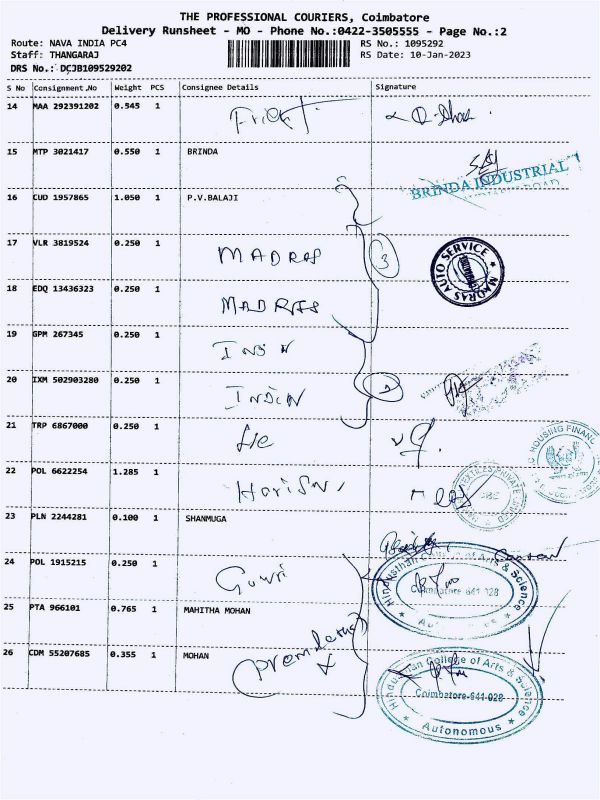 THE PROFESSIONAL COURIERS, Coimbatore
Delivery Runsheet - MO - Phone No.:0422-3505555 - Page No.:2
Route: NAVA INDIA PC4
RS No.: 1095292
Staff: THANGARAJ
RS Date: 10-Jan-2023
DRS No.: DCJB109529202
S No Consignment.No Weight PCS Consignee Details Signature
14 MAA 292391202 0.545 1
15 MTP 3021417 0.550 1 BRINDA
BRINDA INDUSTRIAL
ROAD
16 CUD 1957865 1.050 1 P.V.BALAJI
17 VLR 3819524 0.250 1 MADRAS 3
MADRAS AUTO SERVICE
18 EDQ 13436323 0.250 1 MADRAS
19 GPM 267345 0.250 1
20 IXM 502903280 0.250 1 INDIN
21 TRP 6867000 0.250 1 lic
HOUSING FINANC
22 POL 6622254 1.285 1
TEXTILES PRIVATE
23 PLN 2244281 0.100 1 SHANMUGA
24 POL 1915215 0.250 1 Gowri
Hindusthan College of Arts & Science
Coimbatore-641 028
Autonomous
25 PTA 966101 0.765 1 MAHITHA MOHAN
26 CDM 55207685 0.355 1 MOHAN
Hindusthan College of Arts & Science
Coimbatore-641-028
Autonomous